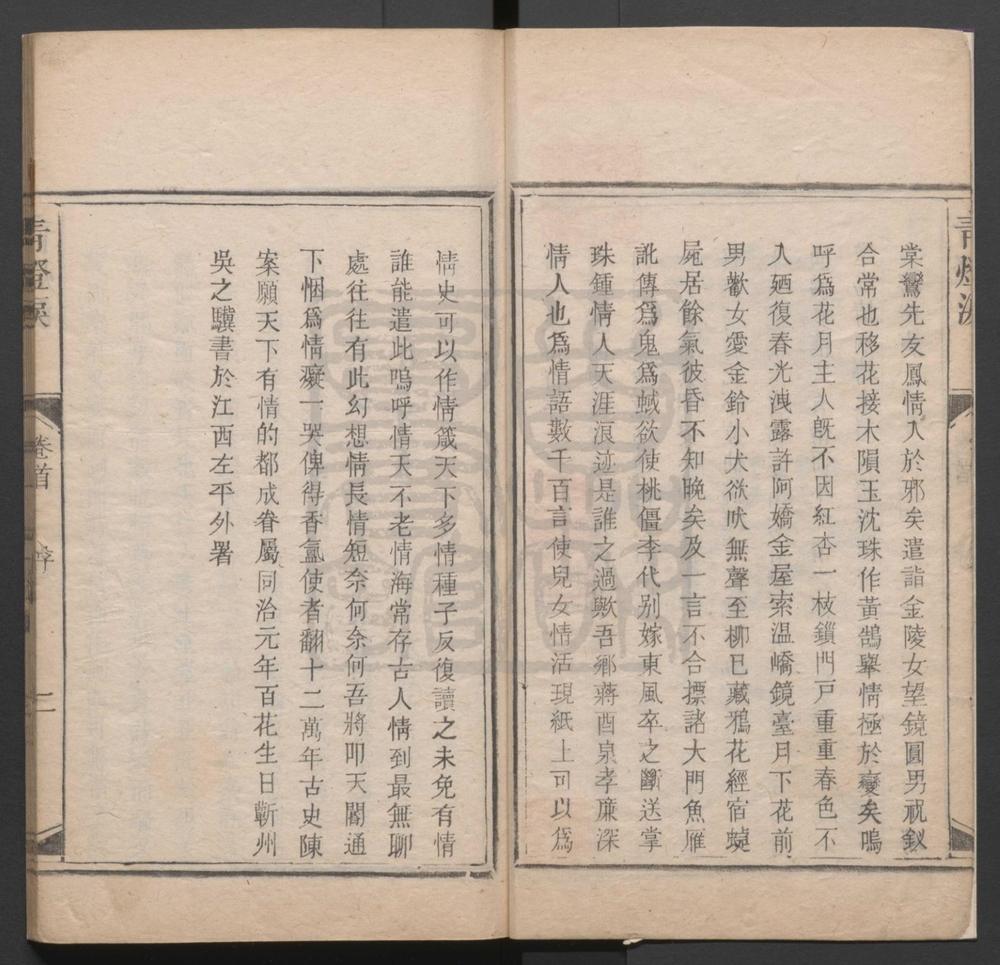 棠鸞先友鳳情入於邪矣遣詣金陵女望鏡圓男祝釵
合常也移花接木隕玉沈珠作黃鵠舉情極於變矣嗚
呼爲花月主人旣不因紅杏一枝鎖門戸重重春色不
入廼復春光洩露許阿嬌金屋索溫嶠鏡臺月下花前
男歡女愛金鈴小犬欲吠無聲至柳巳藏鴉花經宿蜨
屍居餘氣彼昏不知晚矣及一言不合摽諸大門魚雁
訛傳爲鬼爲蜮欲使桃僵李代別嫁東風卒之斷送掌
珠鍾情人天涯浪迹是誰之過歟吾鄉蔣酉泉孝廉深
情人也爲情語數千百言使兒女情活現紙上可以爲
情史可以作情箴天下多情種子反復讀之未免有情
誰能遣此嗚呼情天不老情海常存古人情到最無聊
處往往有此幻想情長情短奈何奈何吾將叩天閽通
下悃爲情癡一哭俾得香氲使者翻十二萬年古史陳
案願天下有情的都成眷屬同治元年百花生日蘄州
吳之驥書於江西左平外署
卷首
序
二